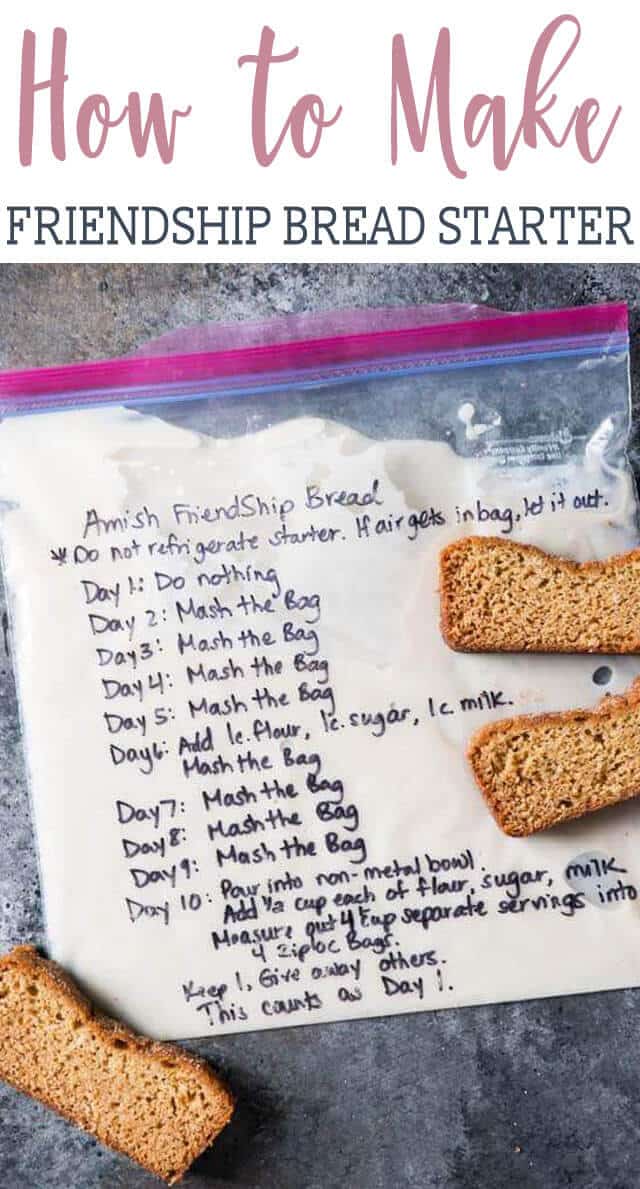 How to Make
FRIENDSHIP BREAD STARTER
Amish FriendShip Bread
* Do not refrigerate starter. If air gets in bag, let it out.
Day 1: Do nothing
Day 2: Mash the Bag
Day 3: Mash the Bag
Day 4: Mash the Bag
Day 5: Mash the Bag
Day 6: Add 1c. flour, 1c. sugar, 1c. milk.
Mash the Bag
Day 7: Mash the Bag
Day 8: Mash the Bag
Day 9: Mash the Bag
Day 10: Pour into non-metal bowl.
Add 1/2 cup each of flour, sugar, milk
Measure out 4 separate servings into
4 Ziploc Bags.
Keep 1, Give away others.
This counts as Day 1.